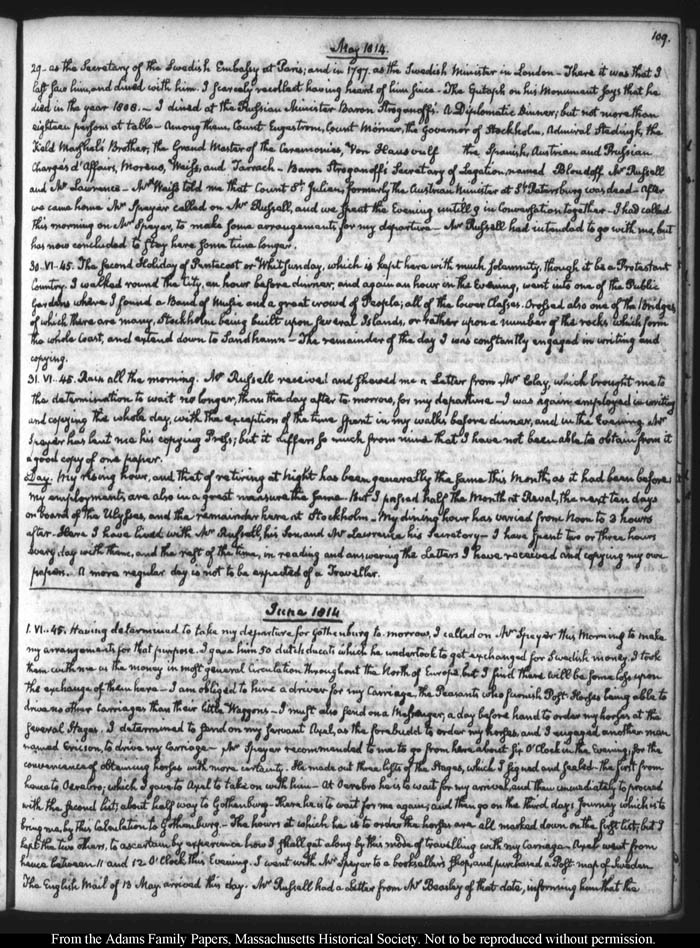 109.
May 1814.
29- as the Secretary of the Swedish Embassy at Paris; and in 1797. as the Swedish Minister in London - There it was that I
last saw him, and dined with him. I scarcely recollect having heard of him since - The Epitaph on his Monument says that he
died in the year 1808. - I dined at the Russian Minister Baron Stroganoff's. A Diplomatic Dinner; but not more than
eighteen persons at table - Among them, Count Engestrom, Count Mörner, the Governor of Stockholm, Admiral Stedingk, the
Field Marshal's Brother, the Grand Master of the Ceremonies, Von Hauswolf the Spanish, Austrian and Prussian
Chargés d'Affairs, Moreno, Weiss, and Tarrach - Baron Stroganoff's Secretary of Legation, named Bloudoff. Mr Russell
and Mr Lawrence - Mr Weiss told me that Count St Julien, formerly the Austrian Minister at St Petersburg was dead - After
we came home Mr Speyer called on Mr Russell, and we spent the Evening untill 9 in Conversation together - I had called
this morning on Mr Speyer, to make some arrangements for my departure - Mr Russell had intended to go with me, but
has now concluded to stay here some time longer.
30. VI-45. The second Holiday of Pentecost or Whitsunday, which is kept here with much solemnity, though it be a Protestant
Country. I walked round the City, an hour before dinner, and again an hour in the Evening, went into one of the Public
Gardens where I found a Band of Music and a great crowd of People; all of the lower Classes. Crossed also one of the Bridges,
of which there are many, Stockholm being built upon several Islands, or rather upon a number of the rocks which form
the whole Coast, and extend down to Sandhamn - The remainder of the day I was constantly engaged in writing and
copying.
31. VI-45. Rain all the morning. Mr Russell received and shewed me a Letter from Mr Clay, which brought me to
the determination to wait no longer, than the day after to morrow, for my departure - I was again employed in writing
and copying the whole day, with the exception of the time spent in my walks before dinner, and in the Evening. Mr
Speyer has lent me his copying Press; but it differs so much from mine that I have not been able to obtain from it
a good copy of one paper.
Day. My rising hour, and that of retiring at Night has been generally the same this Month, as it had been before
my employments are also in a great measure the same. But I passed half the Month at Reval, the next ten days
on board of the Ulysses, and the remainder here at Stockholm - My dining hour has varied from Noon to 3 hours
after. Here I have lived with Mr Russell, his Son and Mr Lawrence his Secretary - I have spent two or three hours
every day with them, and the rest of the time, in reading and answering the Letters I have received and copying my own
papers. A more regular day is not to be expected of a Traveller.
June 1814
1. VI..45. Having determined to take my departure for Gothenburg to-morrow, I called on Mr Speyer this Morning to make
my arrangements for that purpose. I gave him 50 dutch ducats which he undertook to get exchanged for Swedish money. I took
them with me as the money in most general Circulation throughout the North of Europe, but I find there will be some loss upon
the exchange of them here - I am obliged to hire a driver for my Carriage, the Peasants who furnish Post-Horses being able to
drive no other Carriages than their little Waggons - I must also send on a Messenger, a day before hand to order my horses at the
several Stages. I determined to send on my servant Axel, as the forebudd to order my horses, and I engaged another man
named Ericson, to drive my Carriage - Mr Speyer recommended to me to go from here about six O'Clock in the Evening, for the
convenience of obtaining horses with more certainty. He made out three lists of the Stages, which I signed and sealed - the first from
hence to Oerebro; which I gave to Axel to take on with him - At Oerebro he is to wait for my arrival, and then immediately to proceed
with the second list, about half way to Gothenburg - There he is to wait for me again; and then go on the third days journey which is to
bring me, by this calculation to Gothenburg - The hours at which he is to order the horses are all marked down on the first list; but I
kept the two others, to ascertain by experience how I shall get along by this mode of travelling with my Carriage - Axel went from
hence between 11 and 12 O'Clock this Evening. I went with Mr Speyer to a bookseller's shop, and purchased a Post map of Sweden
The English Mail of 13 May arrived this day. Mr Russell had a Letter from Mr Beasley of that date, informing him that the
From the Adams Family Papers, Massachusetts Historical Society. Not to be reproduced without permission.